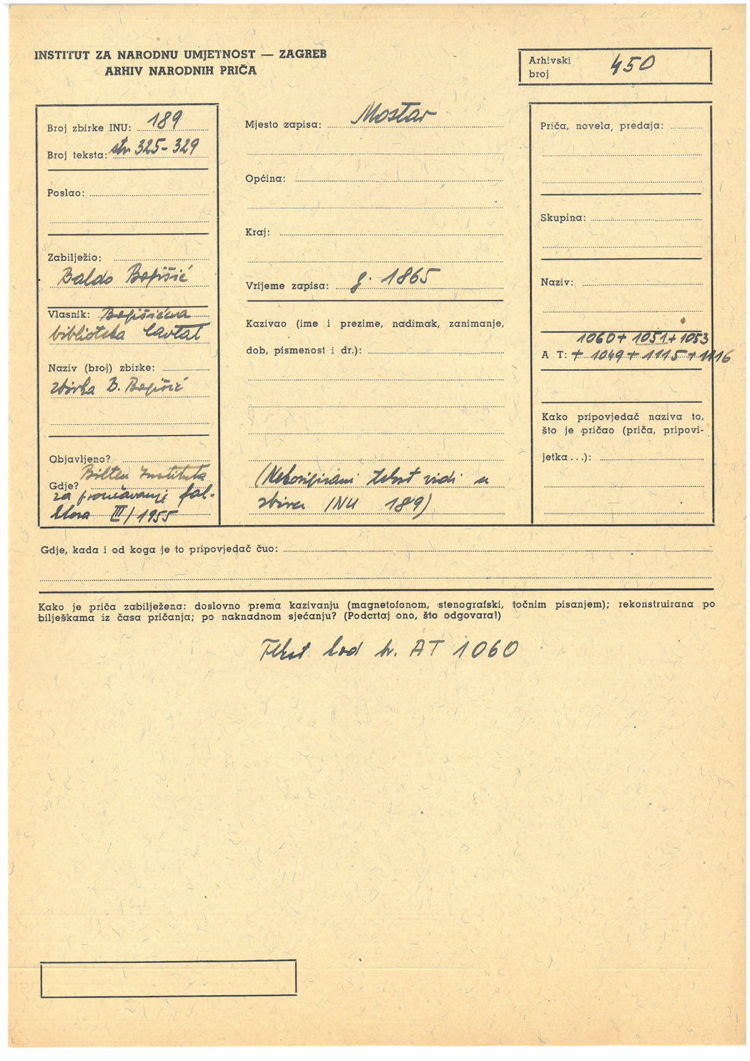 INSTITUT ZA NARODNU UMJETNOST — ZAGREB
ARHIV NARODNIH PRIČA
Arhivski broj 450
Broj zbirke INU: 189
Broj teksta: str 325-329
Poslao:
Zabilježio:
Baldo Bogišić
Vlasnik: Bogišićeva
biblioteka Cavtat
Naziv (broj) zbirke:
zbirka B. Bogišić
Objavljeno?
Bilten Instituta
Gdje?
za proučavanje fol-
klora III/1955
Mjesto zapisa: Mostar
Općina:
Kraj:
Vrijeme zapisa: g. 1865
Kazivao (ime i prezime, nadimak, zanimanje,
dob, pismenost i dr.):
(Nekorigirani tekst vidi u
zbirci INU 189)
Priča, novela, predaja:
Skupina:
Naziv:
1060 + 1051 + 1053
A T: + 1049 + 1115 + 1116
Kako pripovjedač naziva to,
što je pričao (priča, pripovi-
jetka...):
Gdje, kada i od koga je to pripovjedač čuo:
Kako je priča zabilježena: doslovno prema kazivanju (magnetofonom, stenografski, točnim pisanjem); rekonstruirana po
bilješkama iz časa pričanja; po naknadnom sjećanju? (Podcrtaj ono, što odgovara!)
Tekst kod br. AT 1060